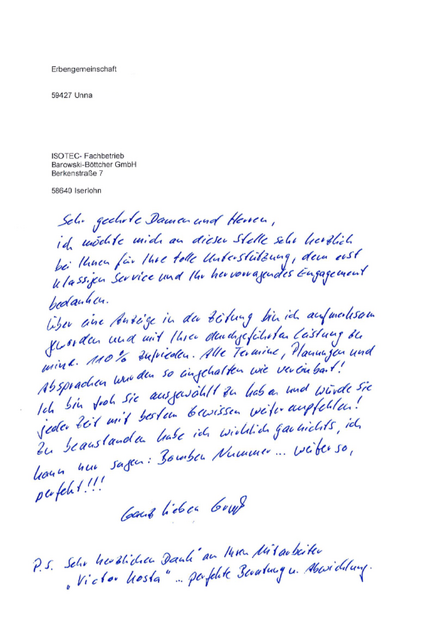 Erbengemeinschaft
59427 Unna
ISOTEC- Fachbetrieb
Barowski-Böttcher GmbH
Berkenstraße 7
58640 Iserlohn
Sehr geehrte Damen und Herren,
ich möchte mich an dieser Stelle sehr herzlich
bei Ihnen für Ihre tolle Unterstützung, dem erst
klassigen Service und Ihr hervorragendes Engagement
bedanken.
Über eine Anzeige in der Zeitung bin ich aufmerksam
geworden und mit Ihrer durchgeführten Leistung zu
mind. 110% zufrieden. Alle Termine, Planungen und
Absprachen wurden so eingehalten wie vereinbart!
Ich bin froh sie ausgewählt zu haben und würde sie
jeder Zeit mit bestem Gewissen weiter empfehlen!
Zu beanstanden habe ich wirklich garnichts, ich
kann nur sagen: Bomben Nummer... weiter so,
perfekt!!!
Ganz lieben Gruß
P.S. Sehr herzlichen Dank an Ihren Mitarbeiter
"Victor Kosta" ... perfekte Beratung u. Abwicklung.